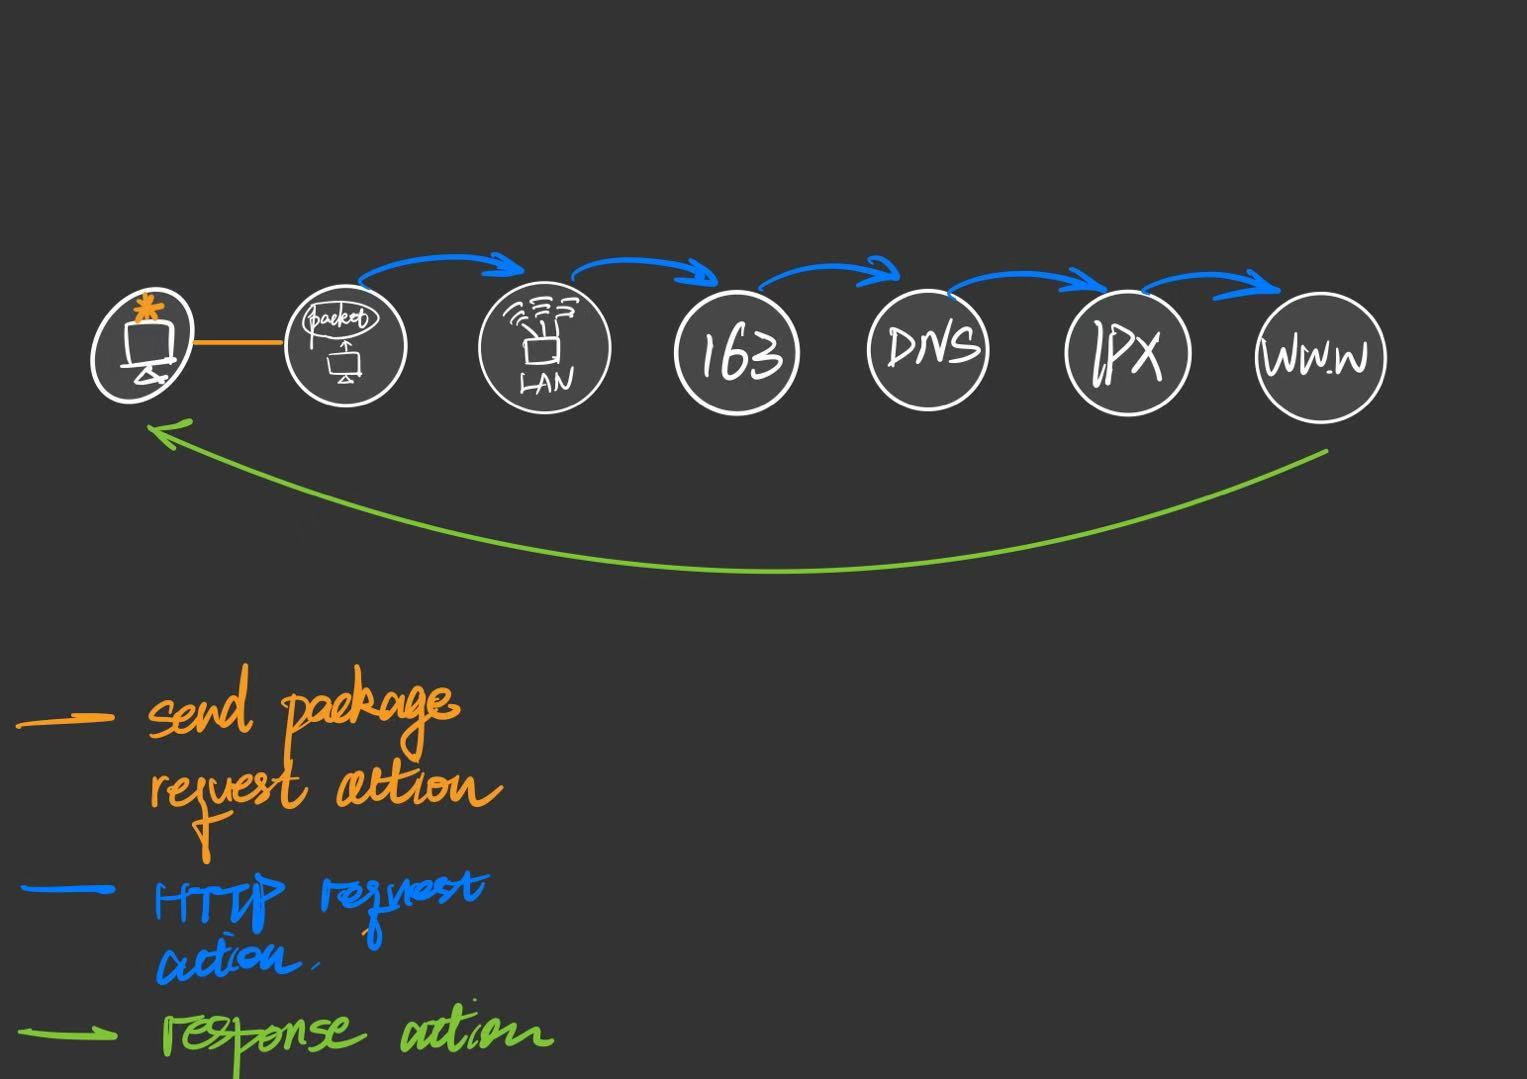 packet
LAN
163
DNS
IPX
WW.W
send package
request action
HTTP request
action.
response action